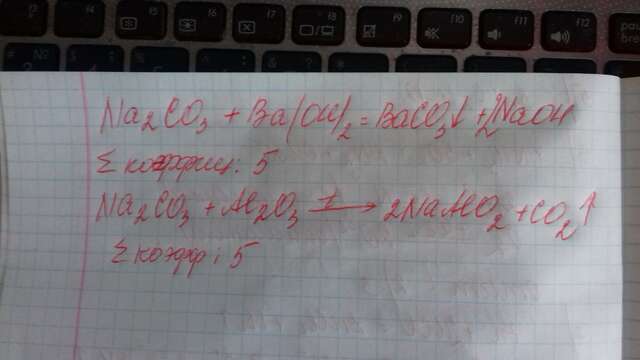 F3 F4 F5 F6 F7 F8 F9 F10 F11 F12 pau bre
Na₂CO₃ + Ba(OH)₂ = BaCO₃↓ + 2NaOH
Σ коэффиц: 5
Na₂CO₃ + Al₂O₃ t⟶ 2NaAlO₂ + CO₂↑
Σ коэфф: 5